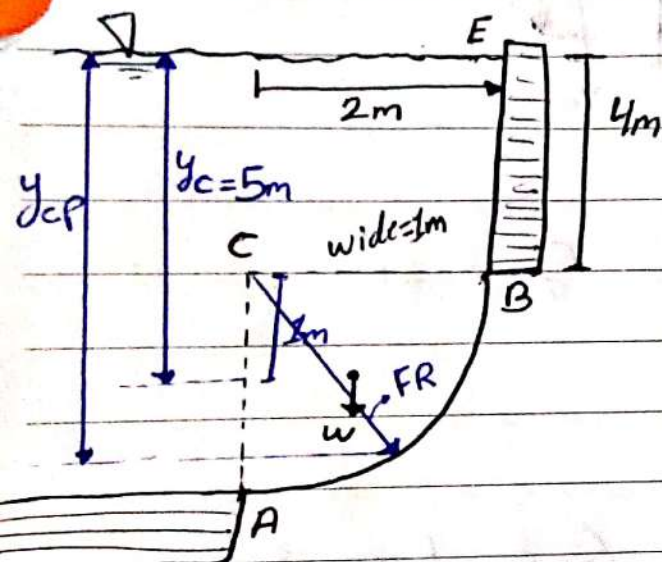 E
2m
4m
ycp
yc=5m
wide=1m
C
B
1m
FR
w
A